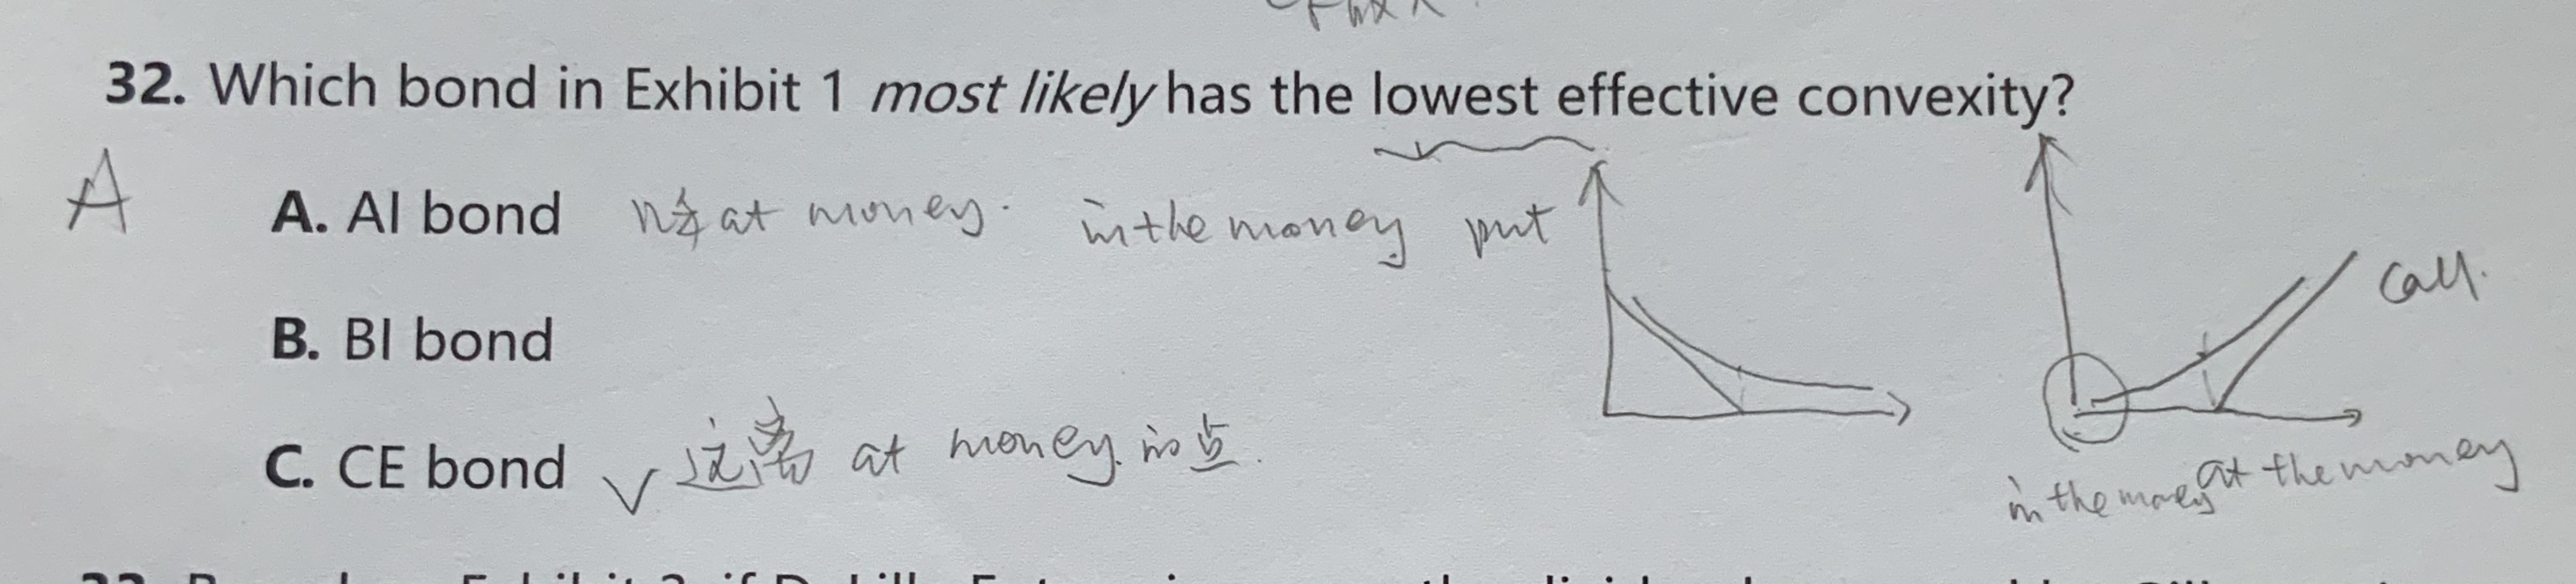 32. Which bond in Exhibit 1 most likely has the lowest effective convexity?
A
A. AI bond at money. in the money put
call.
B. BI bond
C. CE bond ✓ 远离 at money 的点.
in the money at the money